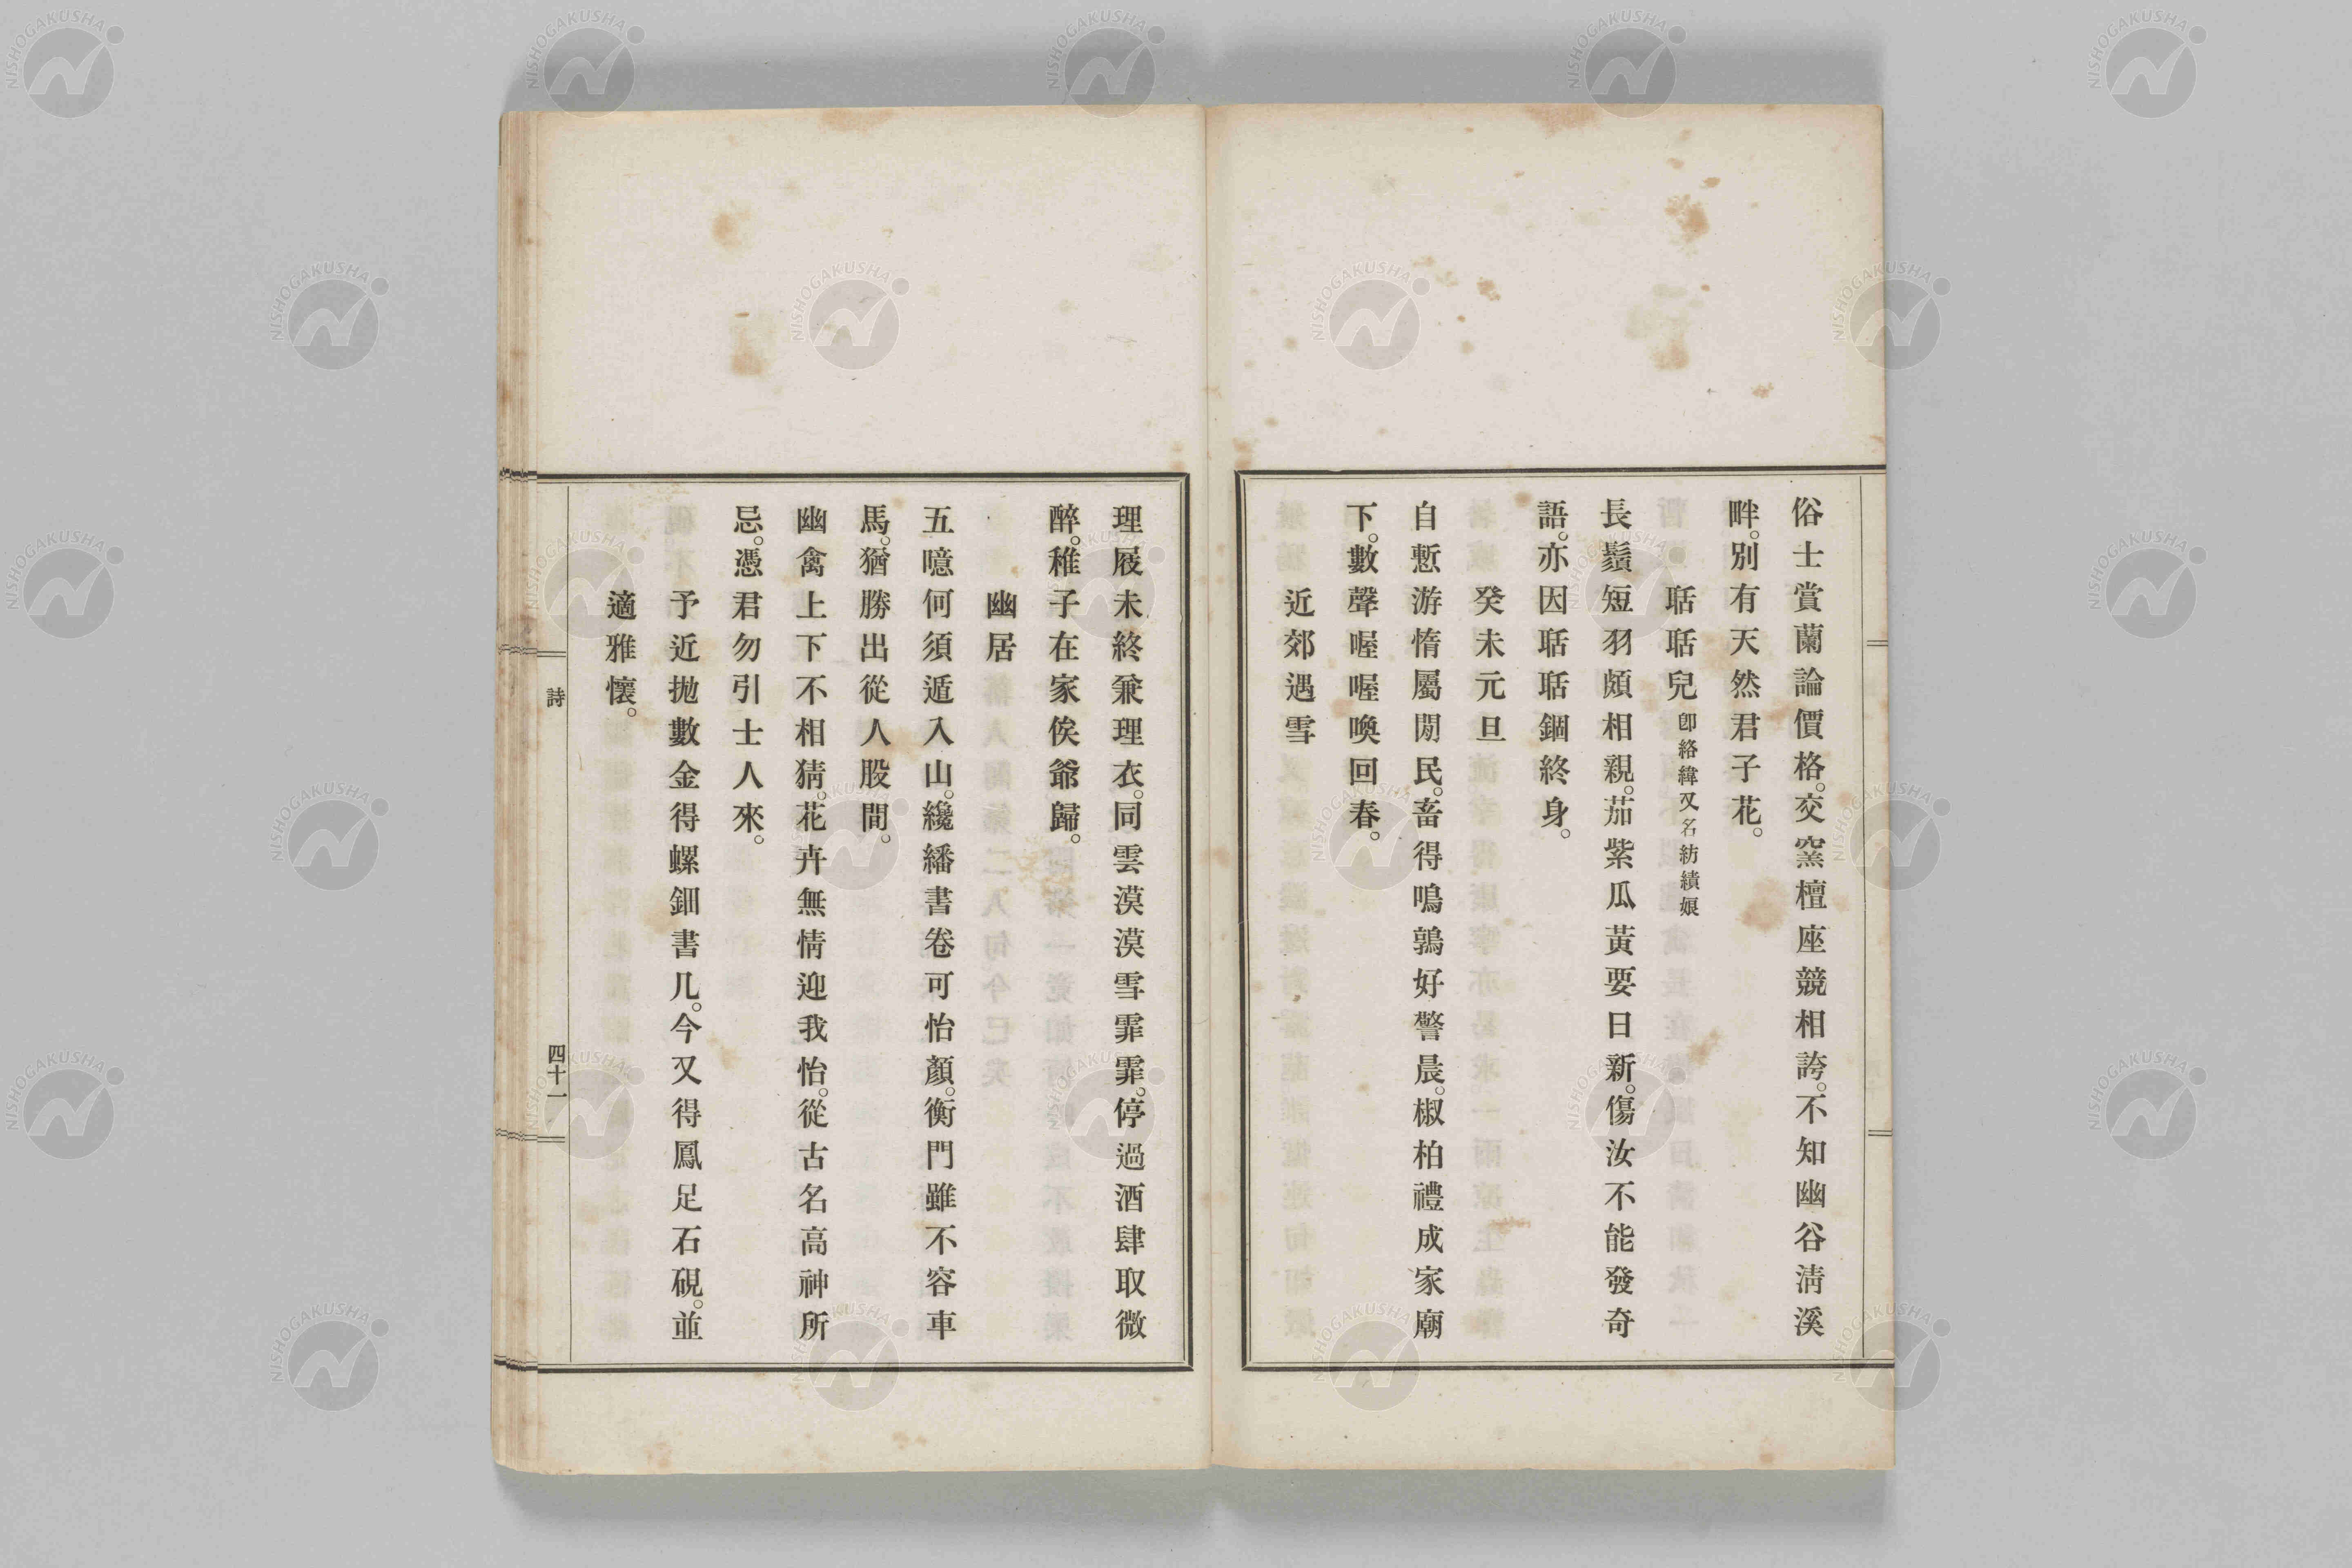 俗士賞蘭論價格。交窯檀座競相誇。不知幽谷淸溪
畔。別有天然君子花。
聒聒兒 卽絡緯又名紡績娘
長鬚短羽頗相親。茄紫瓜黃要日新。傷汝不能發奇
語。亦因聒聒錮終身。
癸未元旦
自慙游惰屬閒民。畜得鳴鷄好警晨。椒柏禮成家廟
下。數聲喔喔喚回春。
近郊遇雪
理屐未終兼理衣。同雲漠漠雪霏霏。停過酒肆取微
醉。稚子在家俟爺歸。
幽居
五噫何須遁入山。纔繙書卷可怡顏。衡門雖不容車
馬。猶勝出從人股間。
幽禽上下不相猜。花卉無情迎我怡。從古名高神所
忌。憑君勿引士人來。
予近拋數金得螺鈿書几。今又得鳳足石硯。並
適雅懷。
詩
四十一
NISHOGAKUSHA